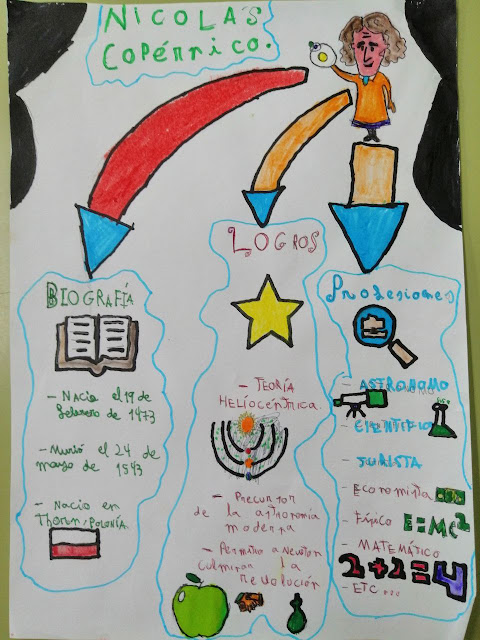 NICOLÁS
COPÉRNICO.
BIOGRAFÍA
- Nacio el 19 de
febrero de 1473
- Murió el 24 de
mayo de 1543
- Nacio en
Thorun, Polonia.
LOGROS
- TEORÍA
HELIOCÉNTRICA.
- Precursor
de la astronomía
moderna
- Permitio a Newton
culminar la
revolución
Profesiones
- ASTRONOMO
- CIENTIFICO
- JURISTA
- Economista
- Físico E=MC²
- MATEMÁTICO
2+2=4
- ETC...